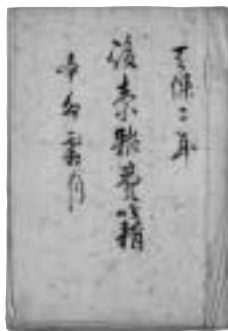 天保二年
後素雑費
辛卯霜月